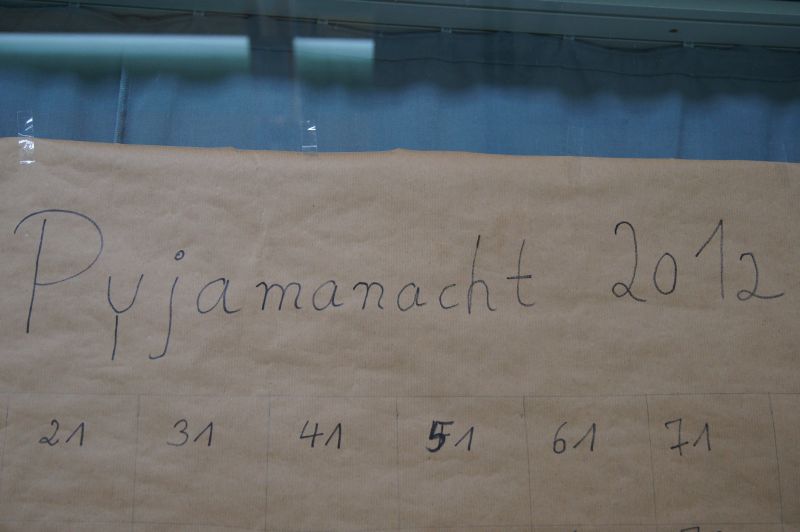 Pyjamanacht 2012
21 31 41 51 61 71